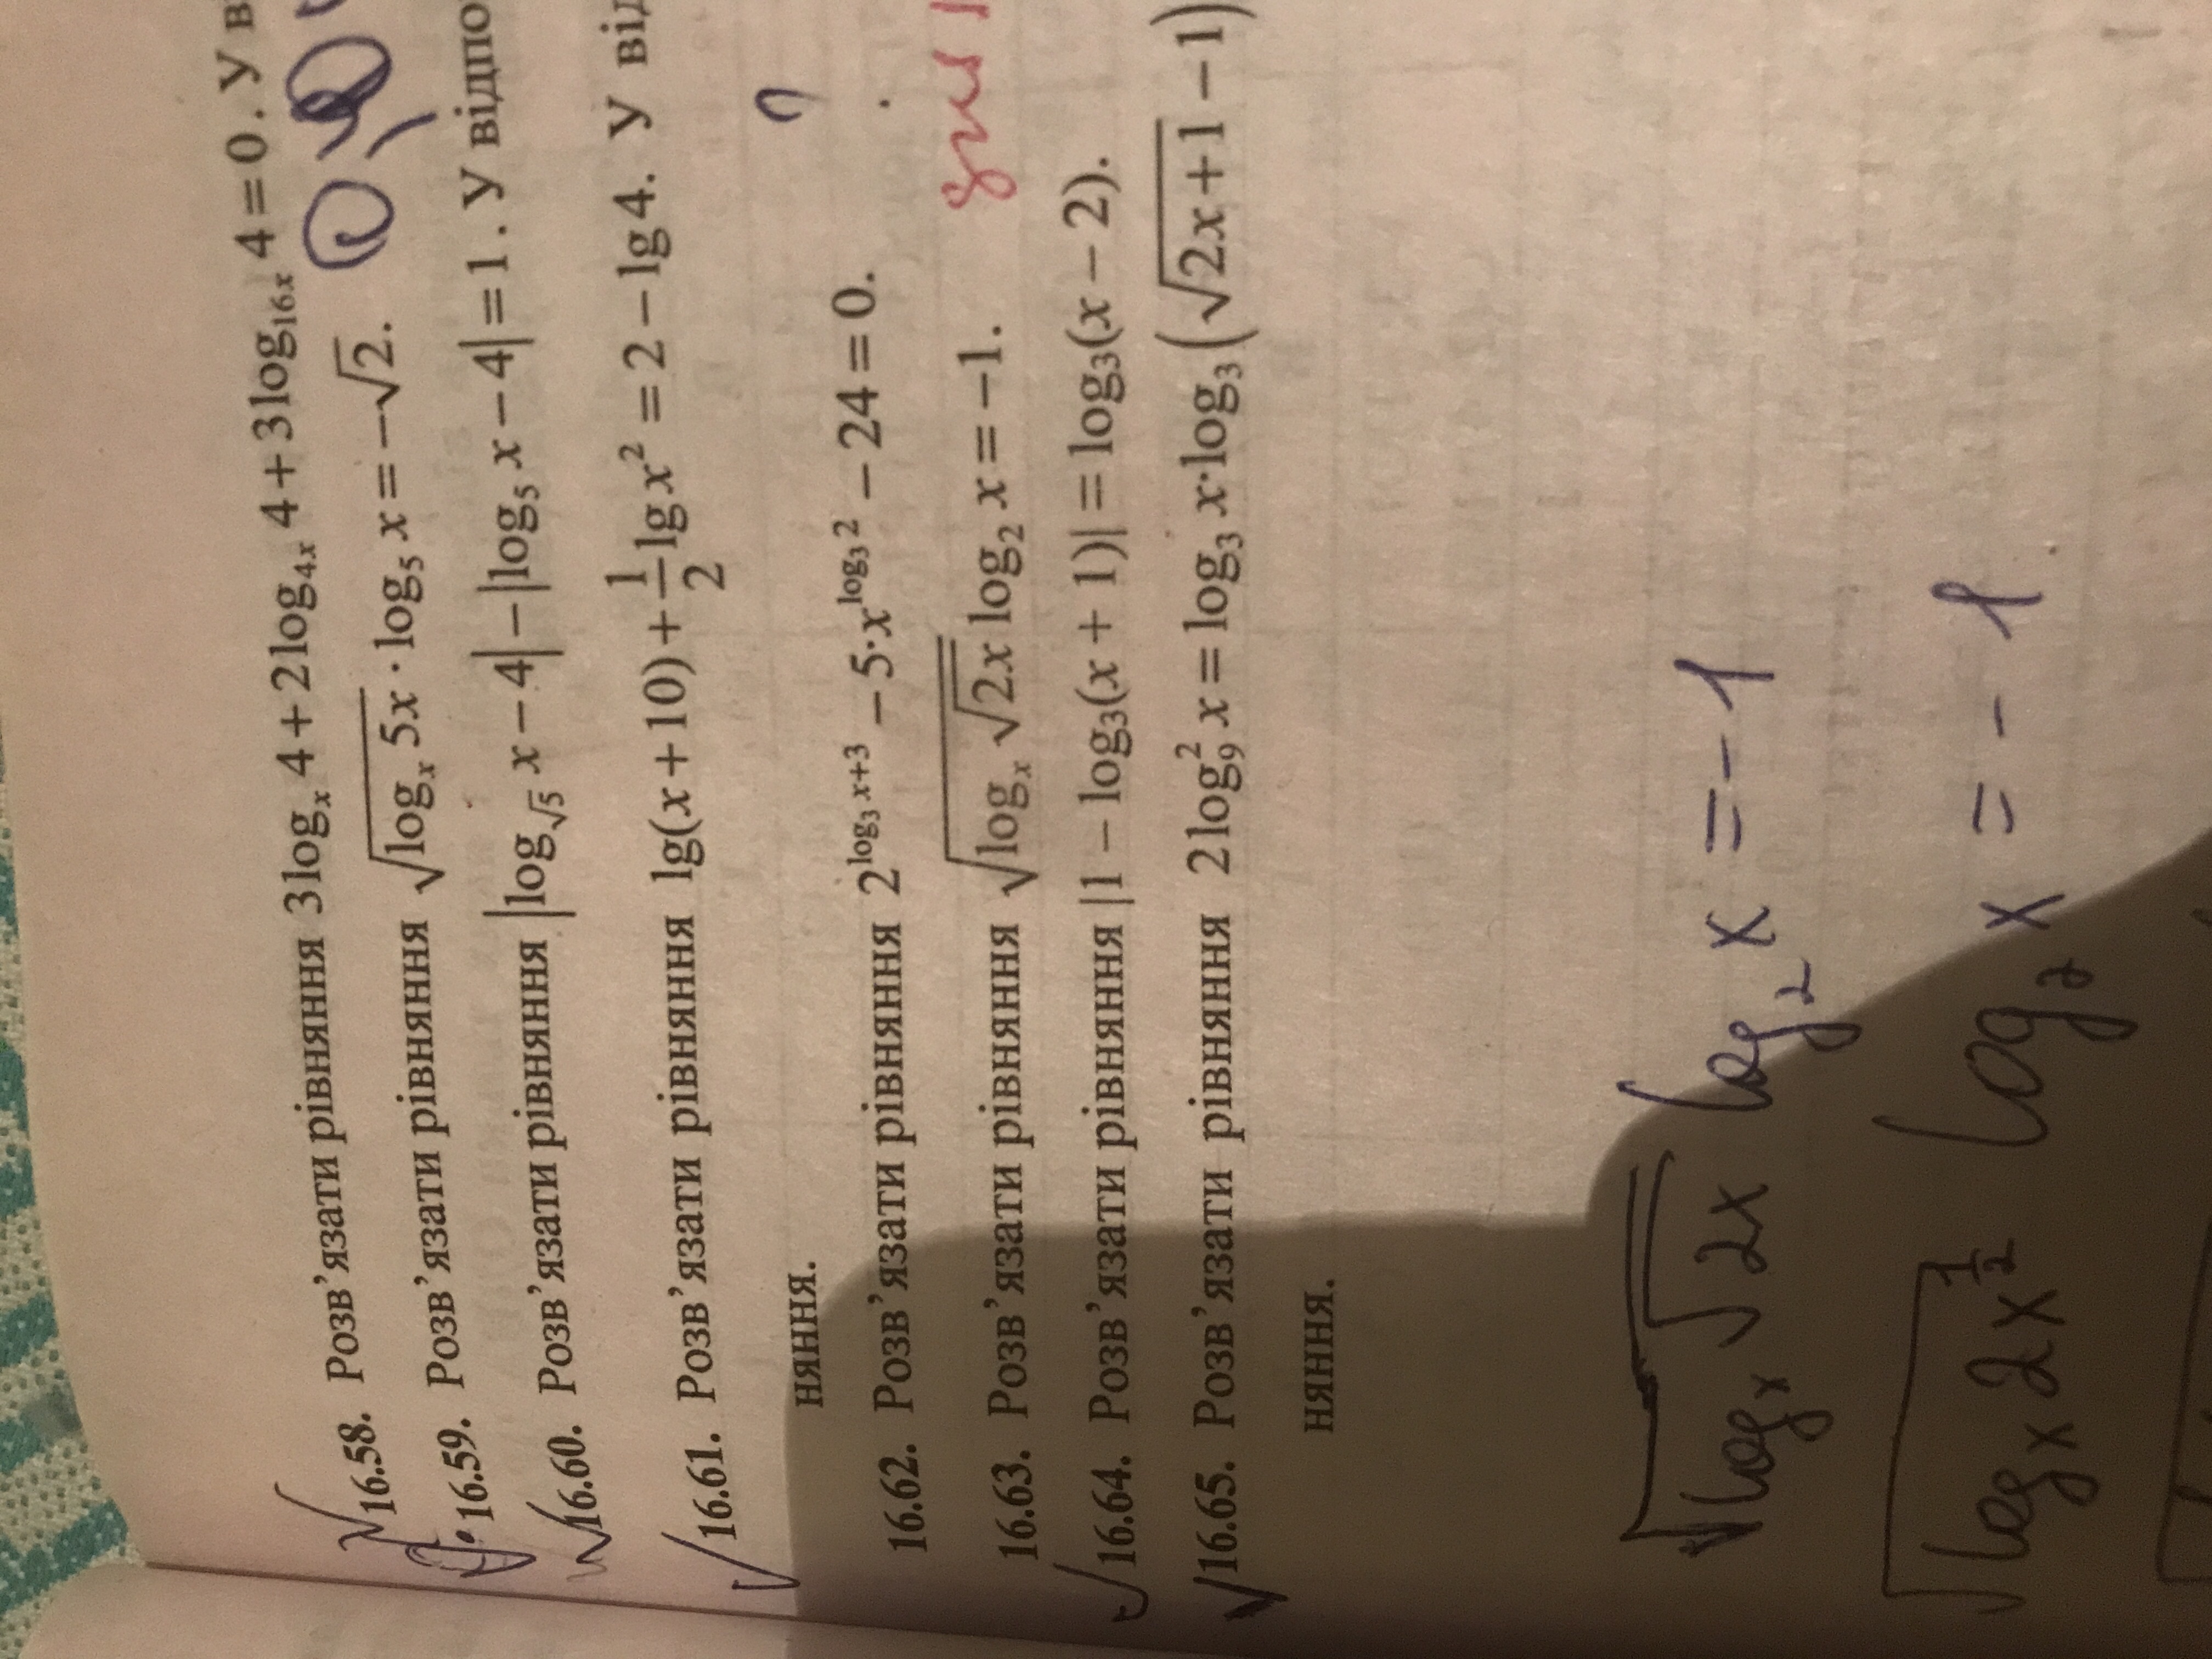 16.58. Розв’язати рівняння 3logₓ 4 + 2log₄ₓ 4 + 3log₁₆ₓ 4 = 0. У в
16.59. Розв’язати рівняння √(logₓ 5x) · log₅ x = −√2.
16.60. Розв’язати рівняння |log_√5 x − 4| − |log₅ x − 4| = 1. У відпо
16.61. Розв’язати рівняння lg(x + 10) + 1/2 lg x² = 2 − lg 4. У від
няння.
16.62. Розв’язати рівняння 2^(log₃ x+3) − 5·x^(log₃ 2) − 24 = 0.
16.63. Розв’язати рівняння √(logₓ √(2x)) log₂ x = −1.
16.64. Розв’язати рівняння |1 − log₃(x + 1)| = log₃(x − 2).
16.65. Розв’язати рівняння 2log₉² x = log₃ x·log₃(√(2x+1) − 1)
няння.
√(logₓ √(2x)) log₂ x = −1
√(logₓ 2x^(1/2)) log₂ x = −1.